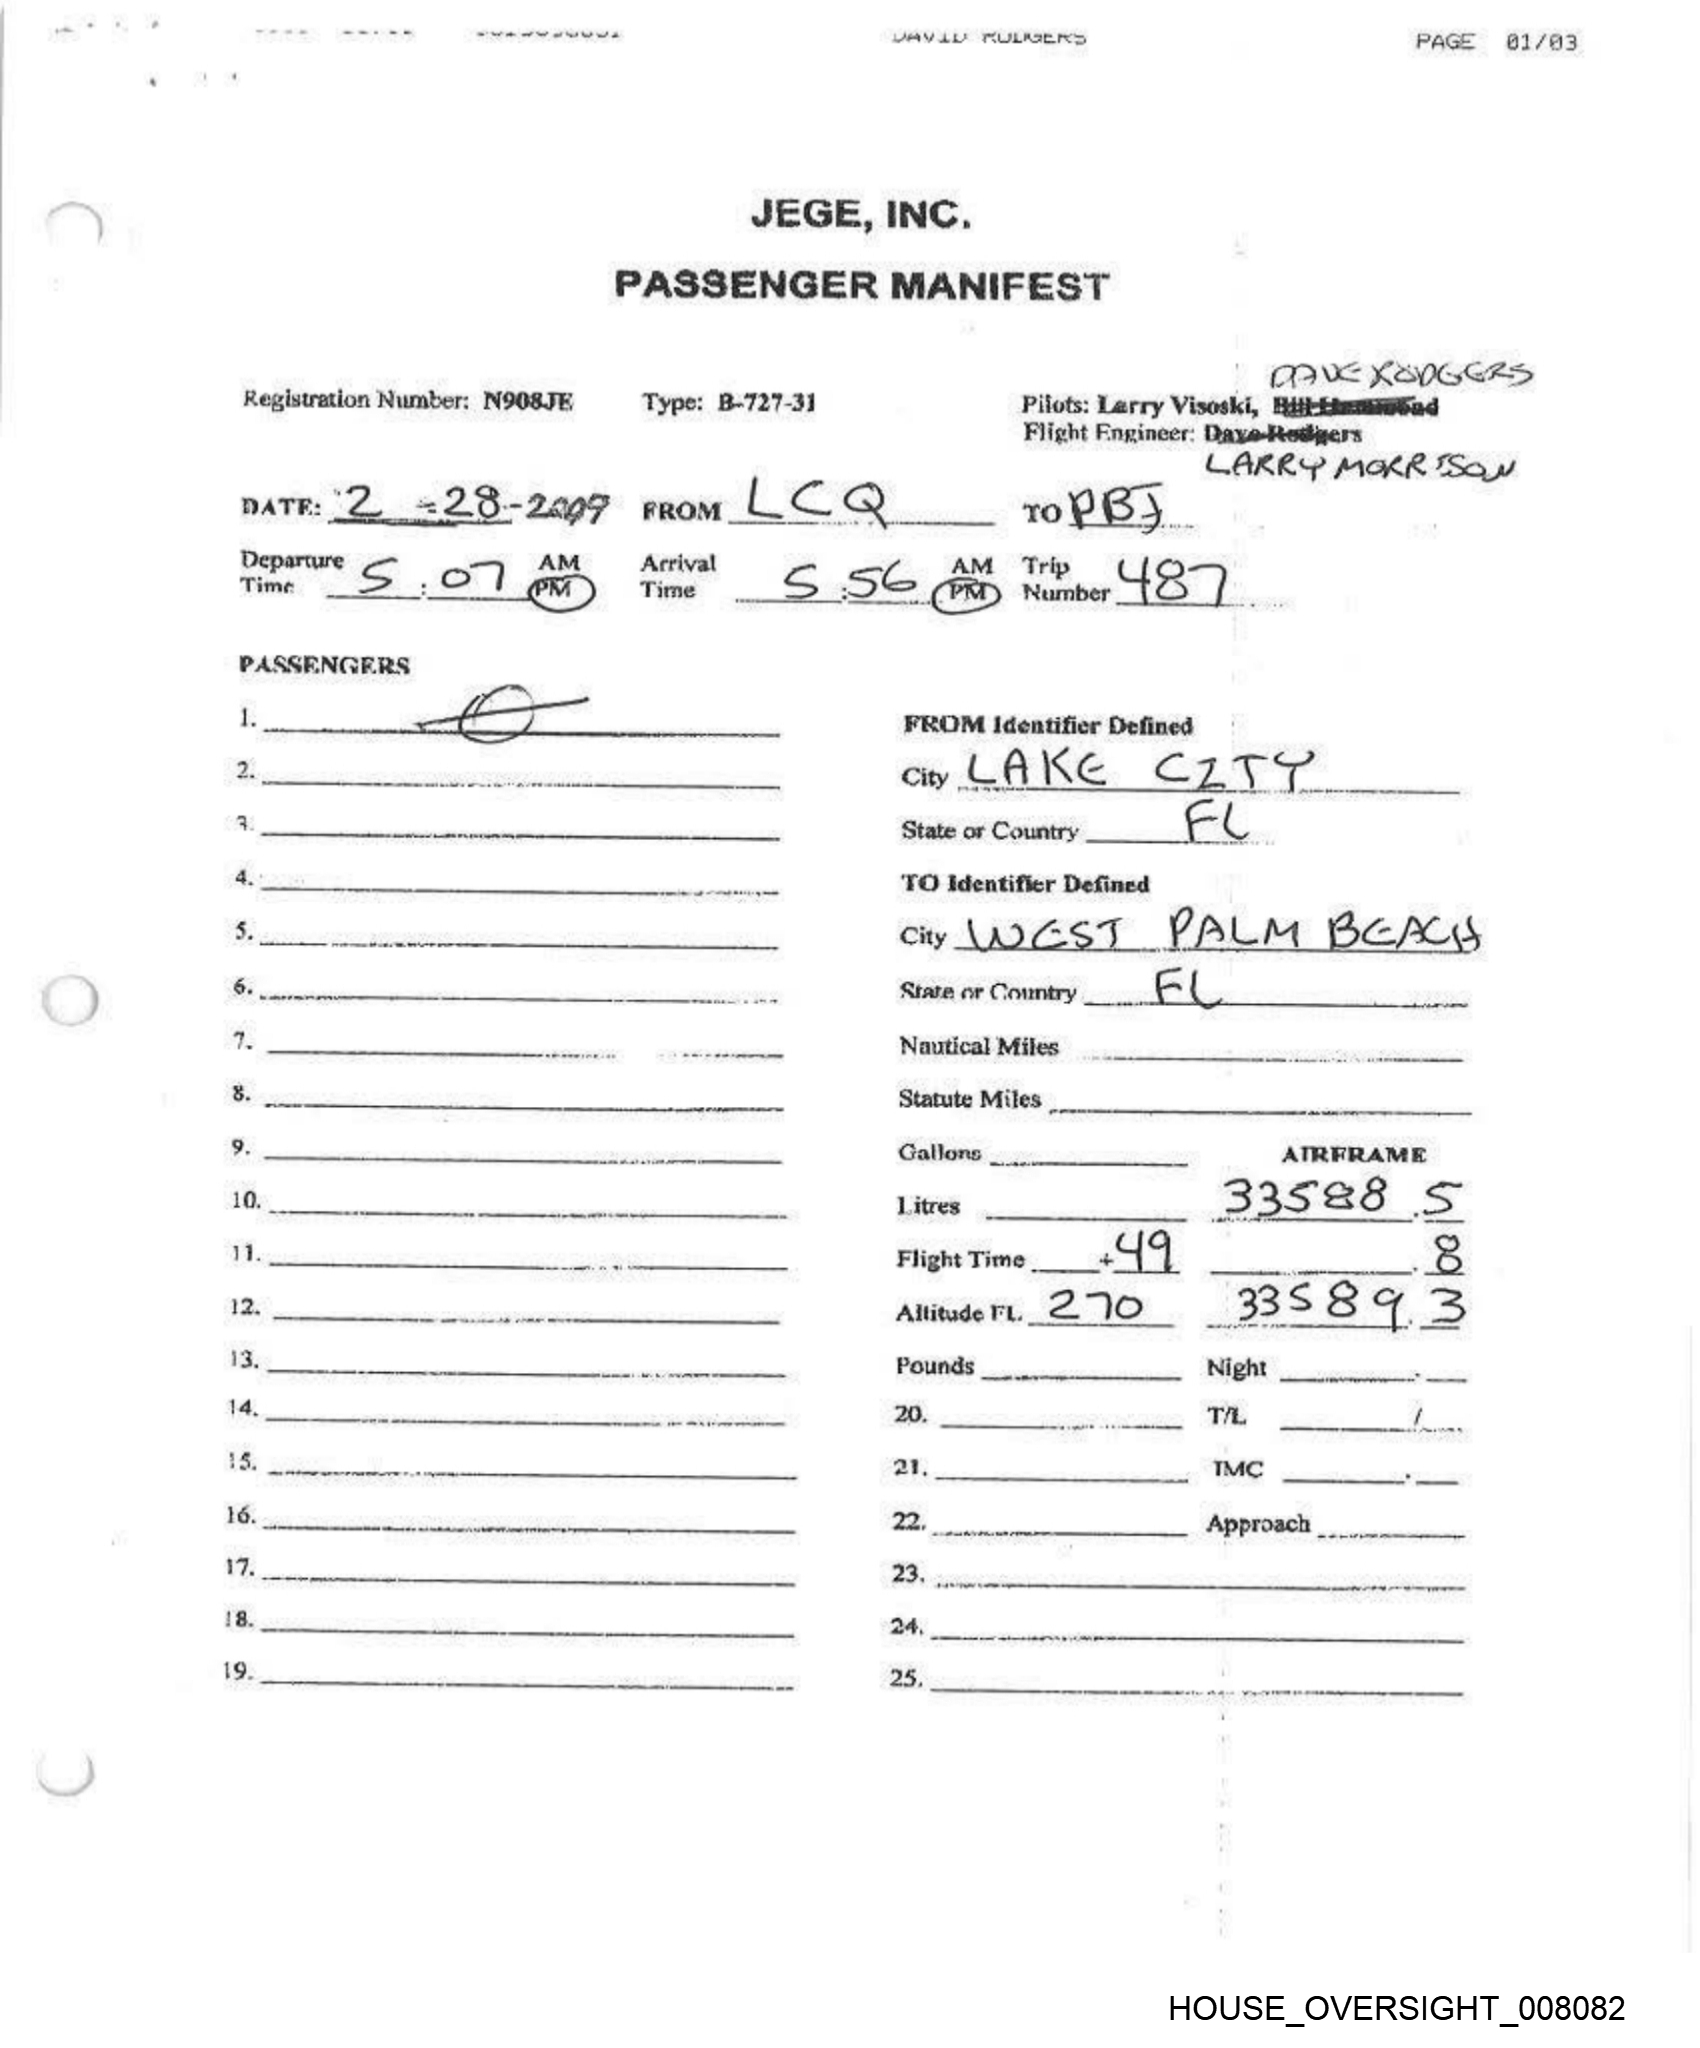 DAVID RODGERS PAGE 01/03
JEGE, INC.
PASSENGER MANIFEST
DAVE RODGERS
Registration Number: N908JE Type: B-727-31 Pilots: Larry Visoski, Bill Hammond
Flight Engineer: Dave Rodgers
LARRY MORRISON
DATE: 2-28-2009 FROM LCQ TO PBI
Departure Time 5:07 AM PM Arrival Time 5:56 AM PM Trip Number 487
PASSENGERS
1.
2.
3.
4.
5.
6.
7.
8.
9.
10.
11.
12.
13.
14.
15.
16.
17.
18.
19.
FROM Identifier Defined
City LAKE CITY
State or Country FL
TO Identifier Defined
City WEST PALM BEACH
State or Country FL
Nautical Miles
Statute Miles
Gallons AIRFRAME
Litres 33588.5
Flight Time +49 .8
Altitude FL. 270 33589.3
Pounds Night .
20. T/L /
21. IMC .
22. Approach
23.
24.
25.
HOUSE_OVERSIGHT_008082